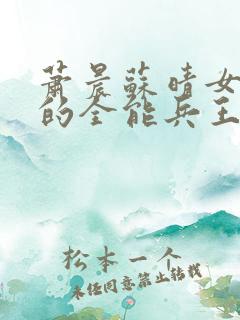 蕭晨蘇晴女
的全能兵王
松本一个
未经同意禁止转载